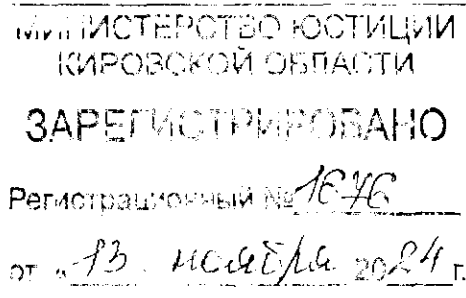 МИНИСТЕРСТВО ЮСТИЦИИ
КИРОВСКОЙ ОБЛАСТИ
ЗАРЕГИСТРИРОВАНО
Регистрационный № 1676
от "13" ноября 2024 г.